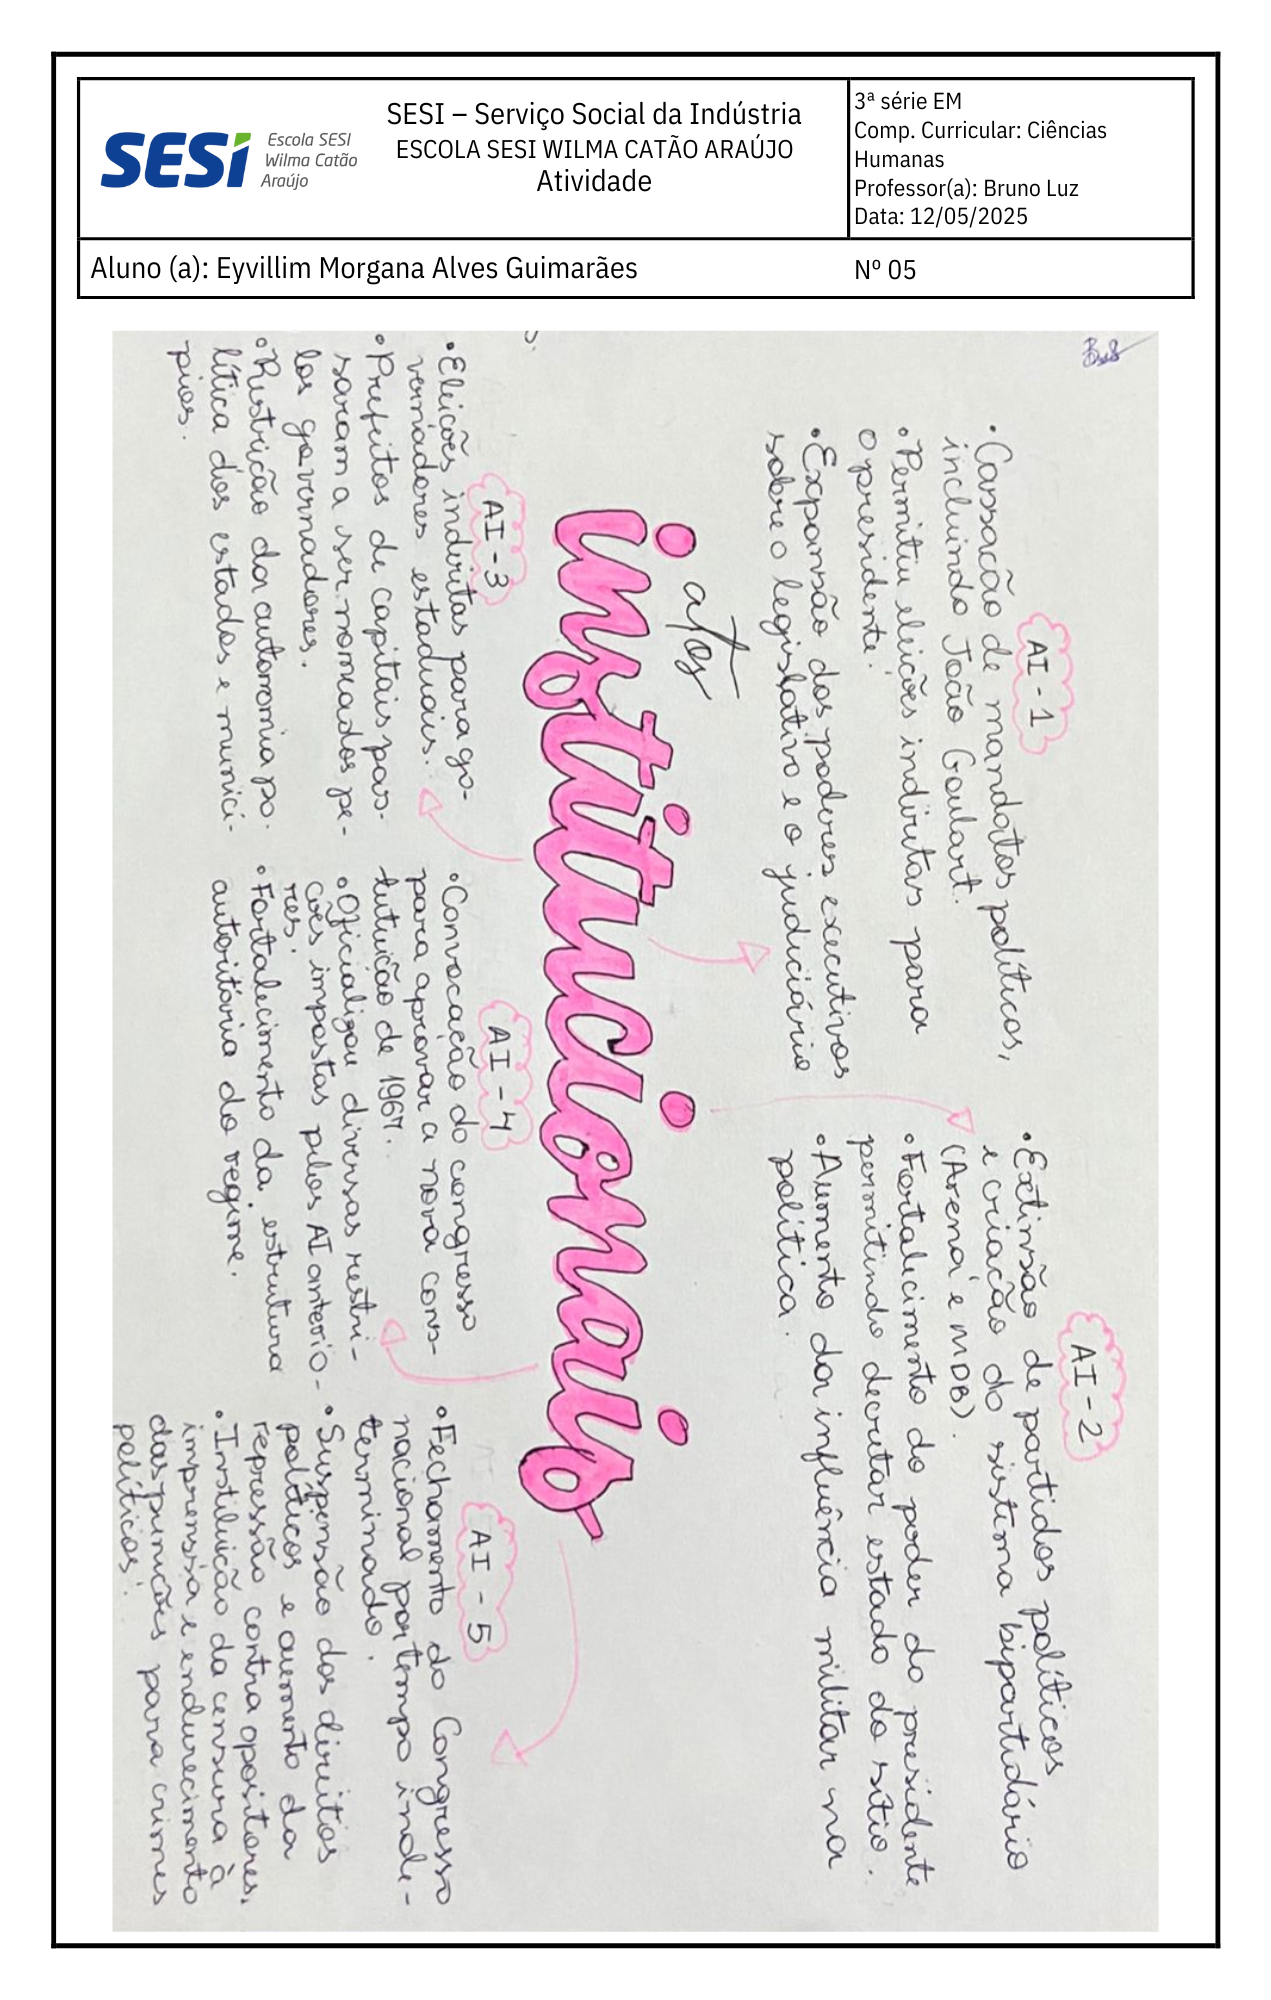 SESI
Escola SESI
Wilma Catão
Araújo
SESI – Serviço Social da Indústria
ESCOLA SESI WILMA CATÃO ARAÚJO
Atividade
3ª série EM
Comp. Curricular: Ciências
Humanas
Professor(a): Bruno Luz
Data: 12/05/2025
Aluno (a): Eyvillim Morgana Alves Guimarães
Nº 05
AI-1
• Cassação de mandatos políticos,
incluindo João Goulart.
• Permitiu eleições indiretas para
o presidente.
• Expansão dos poderes executivos
sobre o legislativo e o judiciário
AI-2
• Extinsão de partidos políticos
e criação do sistema bipartidário
(Arena e MDB).
• Fortalecimento do poder do presidente
permitindo decretar estado do sítio.
• Aumento da influência militar na
política.
atos
institucionais
AI-3
• Eleições indiretas para go-
vernadores estaduais.
• Prefeitos de capitais pas-
saram a ser nomeados pe-
los governadores.
• Restrição da autonomia po-
lítica dos estados e municí-
pios.
AI-4
• Convocação do congresso
para aprovar a nova cons-
tituição de 1967.
• Oficializou diversas restri-
ções impostas pelos AI anterio-
res.
• Fortalecimento da estrutura
autoritária do regime.
AI-5
• Fechamento do Congresso
nacional por tempo inde-
terminado.
• Suspensão dos direitos
políticos e aumento da
repressão contra opositores.
• Instituição da censura à
imprensa e endurecimento
das punições para crimes
políticos.